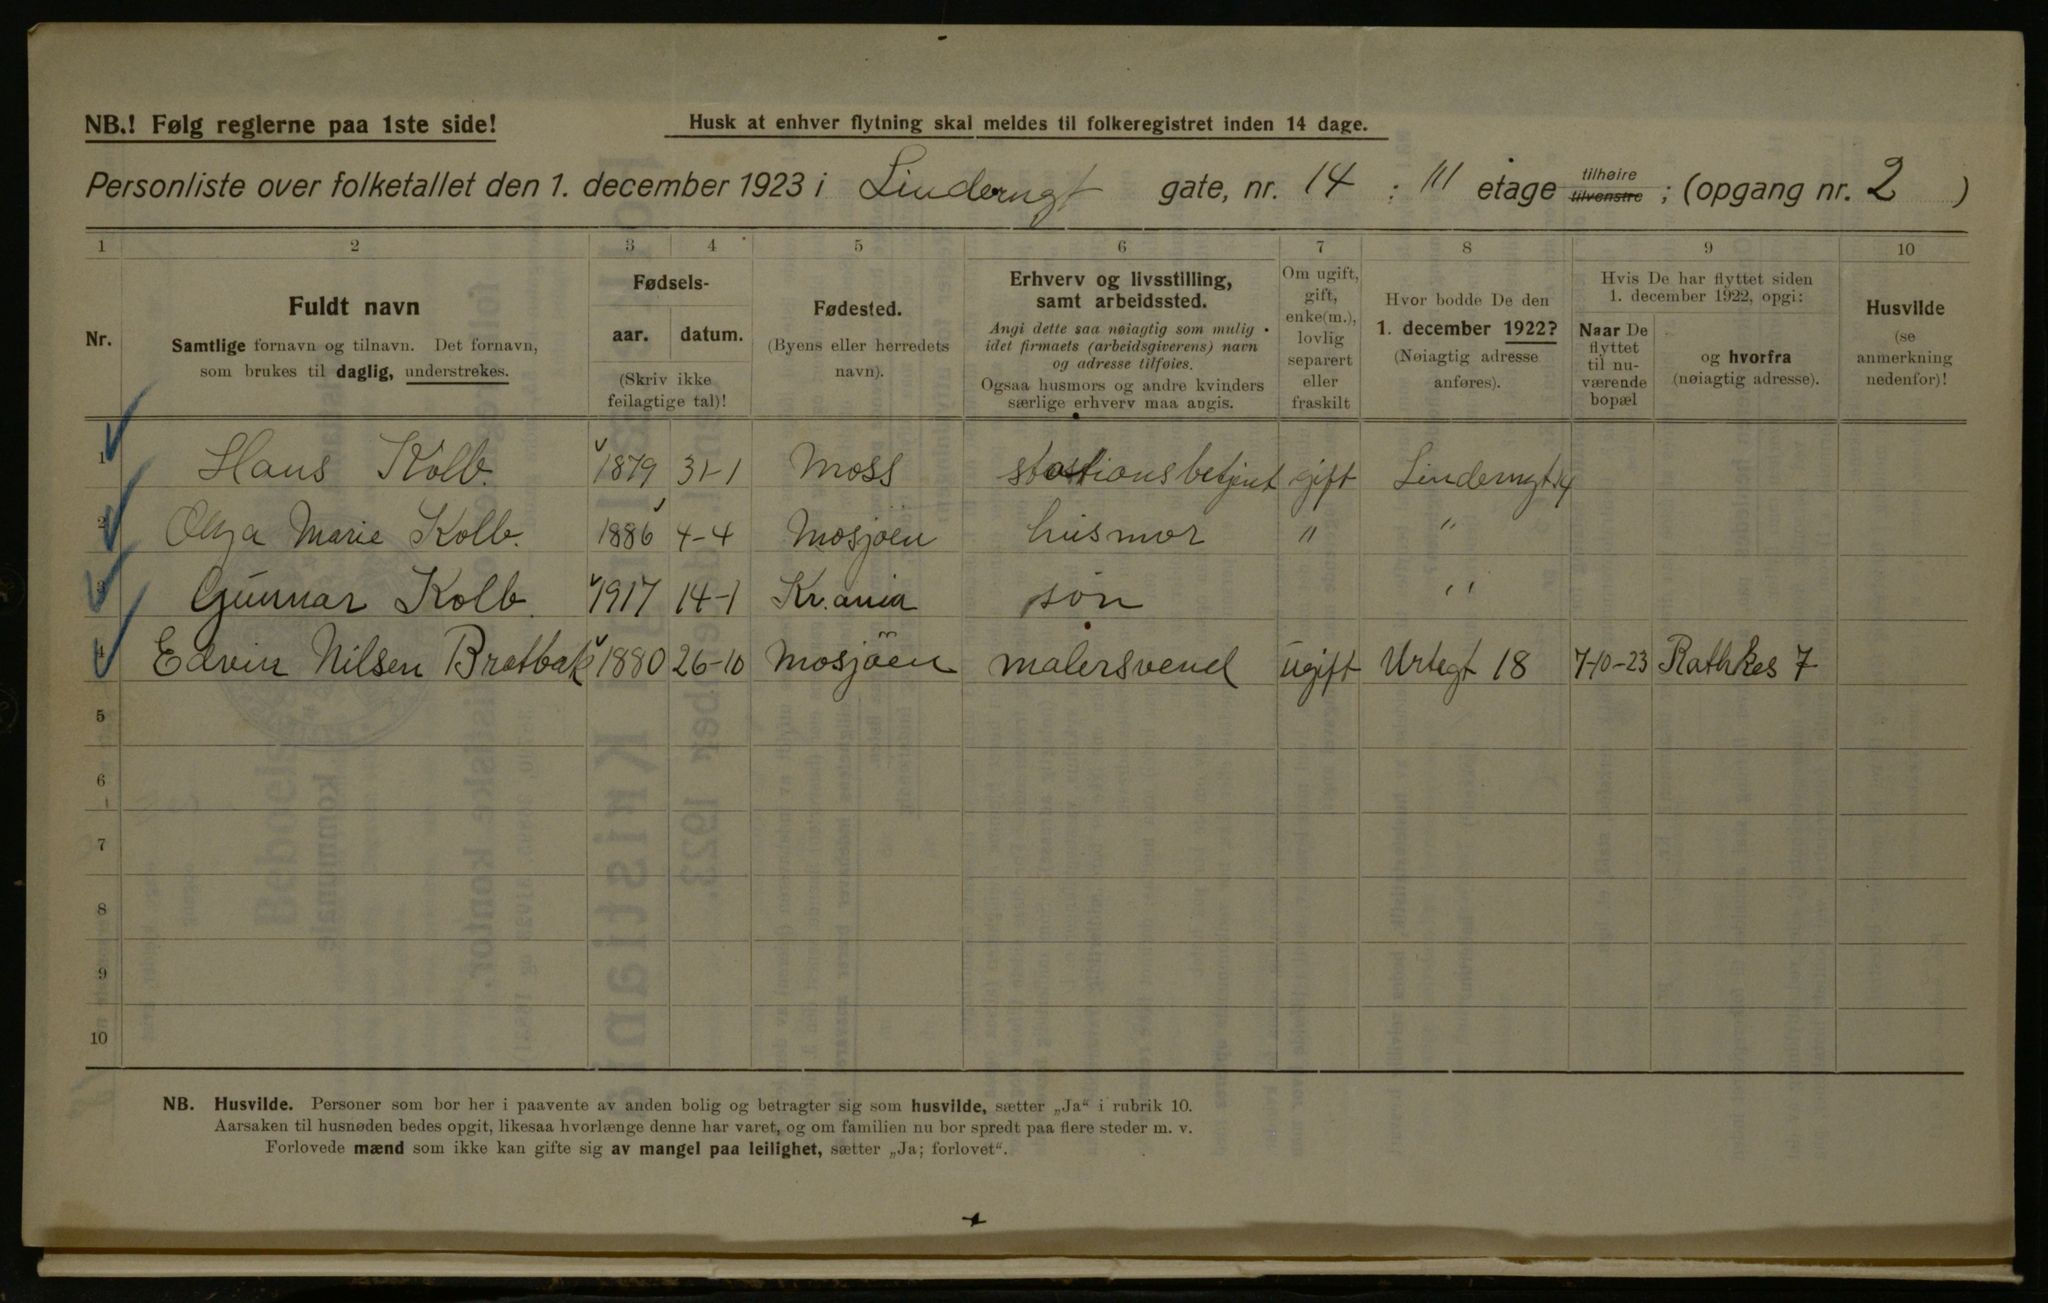 NB.! Følg reglerne paa 1ste side!
Husk at enhver flytning skal meldes til folkeregistret inden 14 dage.
Personliste over folketallet den 1. december 1923 i Linderngt gate, nr. 14 : III etage tilhøire tilvenstre ; (opgang nr. 2 )
1 2 3 4 5 6 7 8 9 10
Nr.
Fuldt navn
Samtlige fornavn og tilnavn. Det fornavn,
som brukes til daglig, understrekes.
Fødsels-
aar. datum.
(Skriv ikke
feilagtige tal)!
Fødested.
(Byens eller herredets
navn).
Erhverv og livsstilling,
samt arbeidssted.
Angi dette saa nøiagtig som mulig
idet firmaets (arbeidsgiverens) navn
og adresse tilføies.
Ogsaa husmors og andre kvinders
særlige erhverv maa angis.
Om ugift,
gift,
enke(m.),
lovlig
separert
eller
fraskilt
Hvor bodde De den
1. december 1922?
(Nøiagtig adresse
anføres).
Hvis De har flyttet siden
1. december 1922, opgi:
Naar De
flyttet
til nu-
værende
bopæl
og hvorfra
(nøiagtig adresse).
Husvilde
(se
anmerkning
nedenfor)!
1 Hans Kolb. 1879 31-1 Moss stastionsbetjent gift Linderngt 14
2 Olga Marie Kolb. 1886 4-4 Mosjøen husmor " "
3 Gunnar Kolb. 1917 14-1 Kr.ania søn "
4 Edvin Nilsen Bratbak 1880 26-10 Mosjøen malersvend ugift Urtegt 18 7-10-23 Rathkes 7
5
6
7
8
9
10
NB. Husvilde. Personer som bor her i paavente av anden bolig og betragter sig som husvilde, sætter „Ja“ i rubrik 10.
Aarsaken til husnøden bedes opgit, likesaa hvorlænge denne har varet, og om familien nu bor spredt paa flere steder m. v.
Forlovede mænd som ikke kan gifte sig av mangel paa leilighet, sætter „Ja; forlovet“.